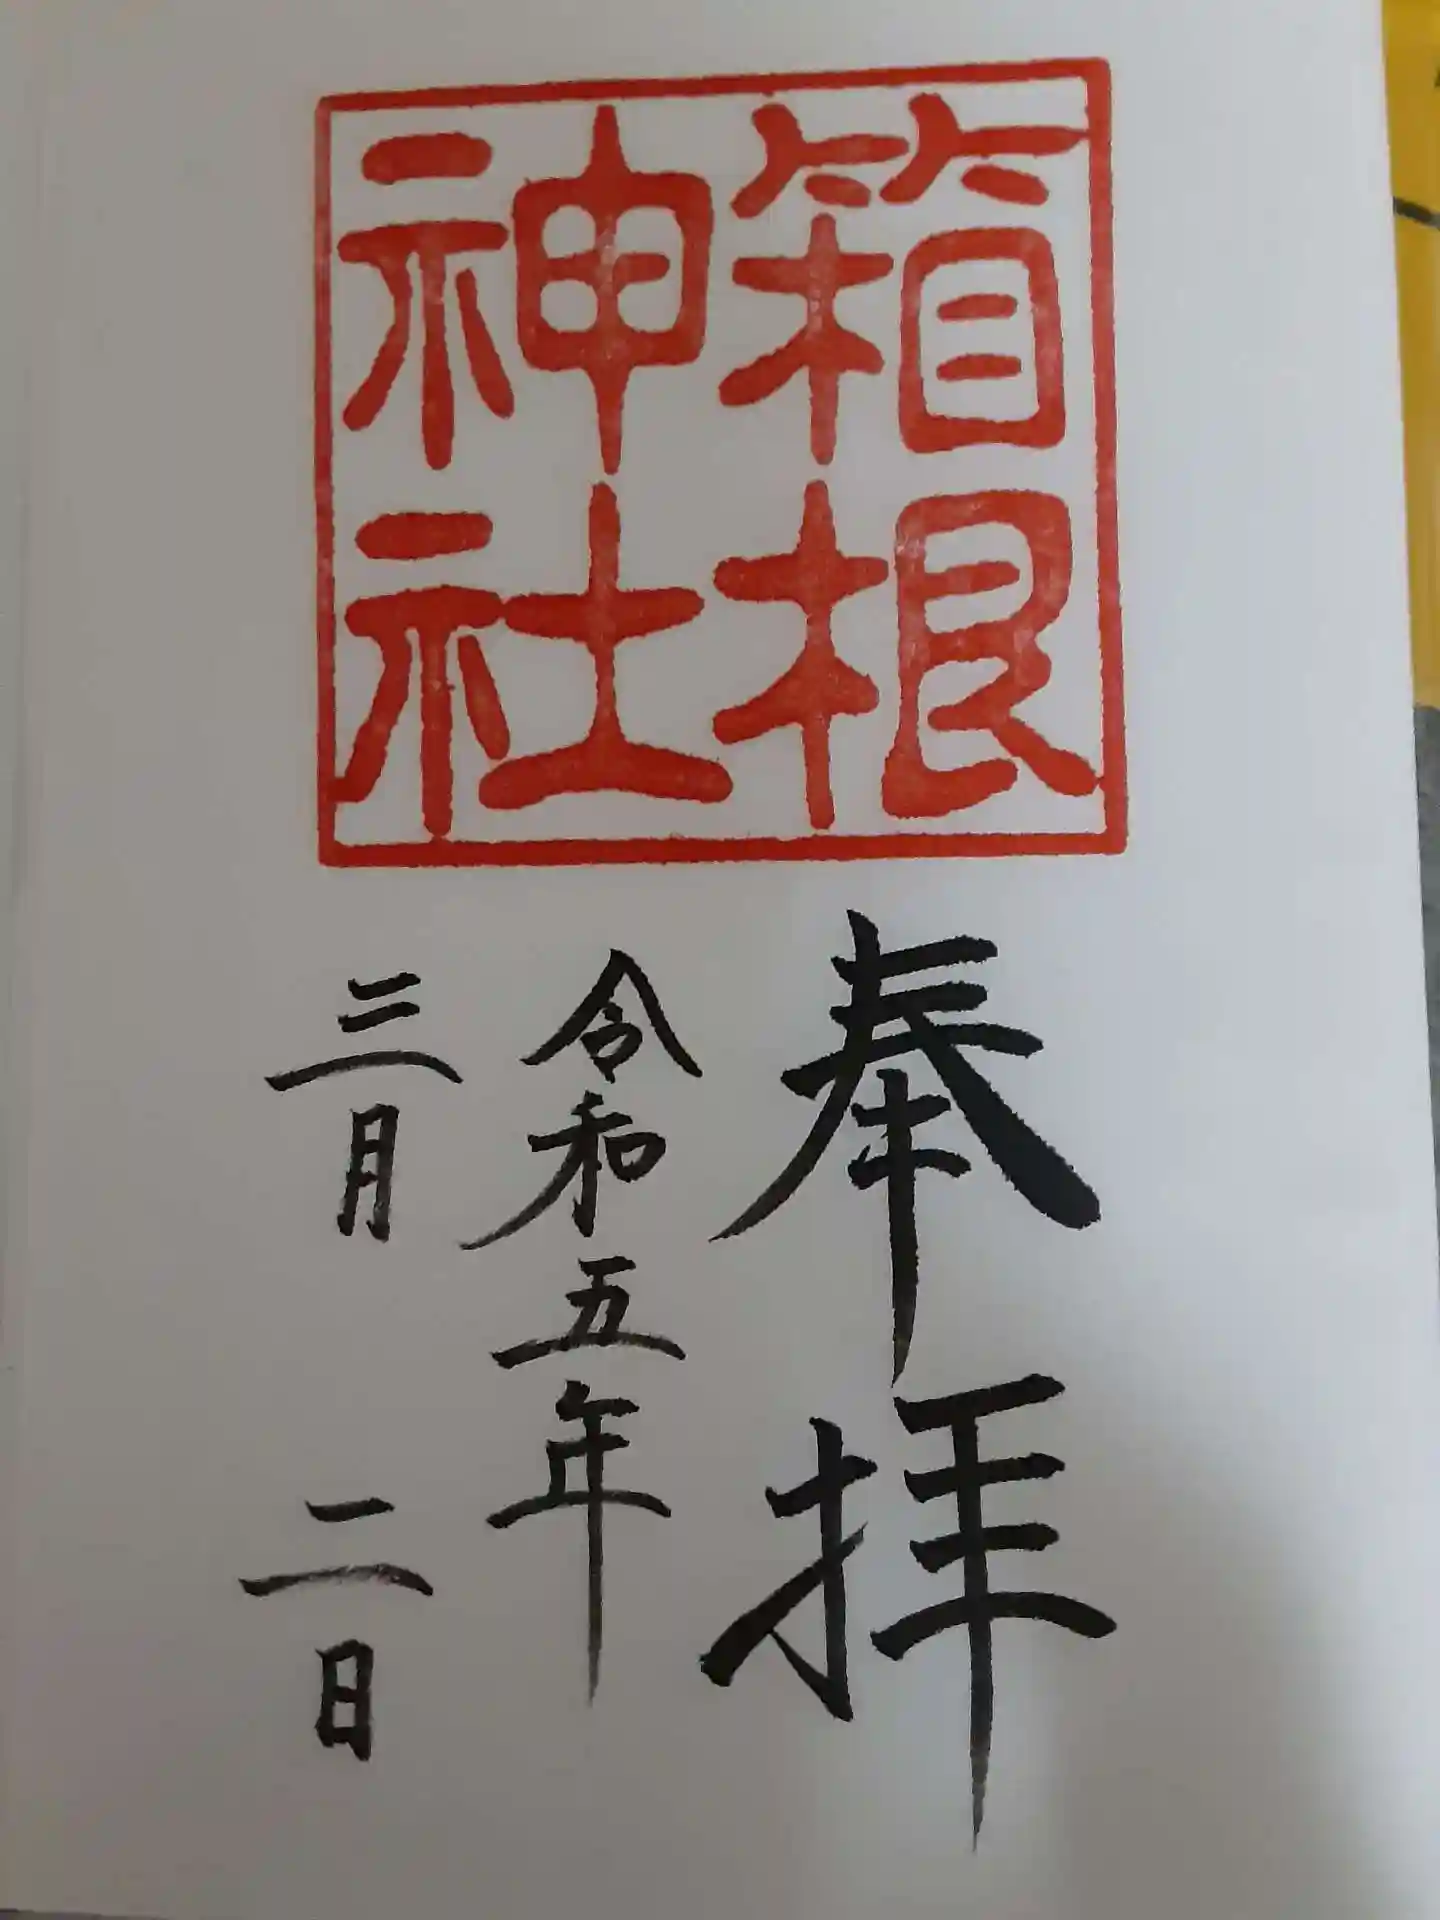 箱根
神社
奉拝
令和五年
三月二日